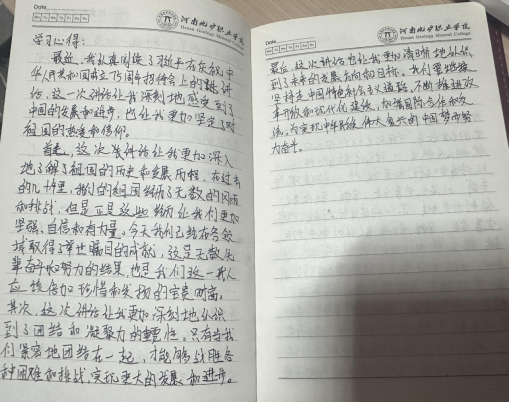 Date
河南地矿职业学院
Henan Geology Mineral College
学习心得：
最近，我认真阅读了习近平在庆祝中
华人民共和国成立75周年招待会上的讲
话，这一次讲话让我深刻地感受到了
中国的发展和进步，也让我更加坚定了对
祖国的热爱和信仰。
首先，这次讲话让我更加深入
地了解了祖国的历史和发展历程，在过去
的几十里，我们的祖国经历了无数的风雨
和挑战，但是正是这些经历让我们更加
坚强、自信和有力量。今天我们已经在各领
域取得了举世瞩目的成就，这是无数先
辈奋斗和努力的结果，也是我们这一代人
应该倍加珍惜和发扬的宝贵财富。
其次，这次讲话让我更加深刻地认识
到了团结和凝聚力的重要性。只有当我
们紧密地团结在一起，才能够战胜各
种困难和挑战，实现更大的发展和进步。
Date
河南地矿职业学院
Henan Geology Mineral College
最后，这次讲话也让我更加清晰地认识
到了未来的发展方向和目标。我们要继续
坚持走中国特色社会主义道路，不断推进改
革开放和现代化建设，加强国际合作和交
流，为实现中华民族伟大复兴的中国梦而努
力奋斗。